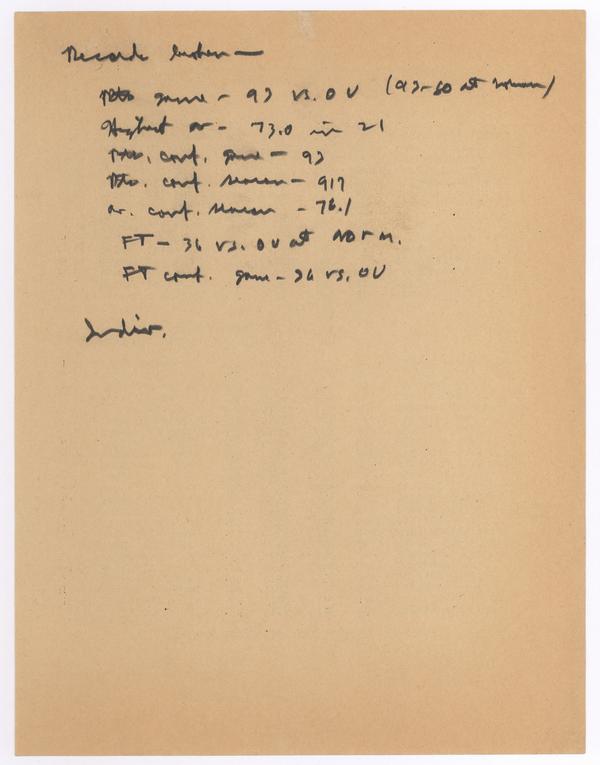 Records broken —
Pts game - 92 vs. OU (92-60 at Norman)
Highest av - 73.0 in 21
Pts. conf. game - 92
Pts. conf. season - 917
av. conf. season - 76.1
FT - 36 vs. OU at Norm.
FT conf. game - 36 vs. OU
Indiv.